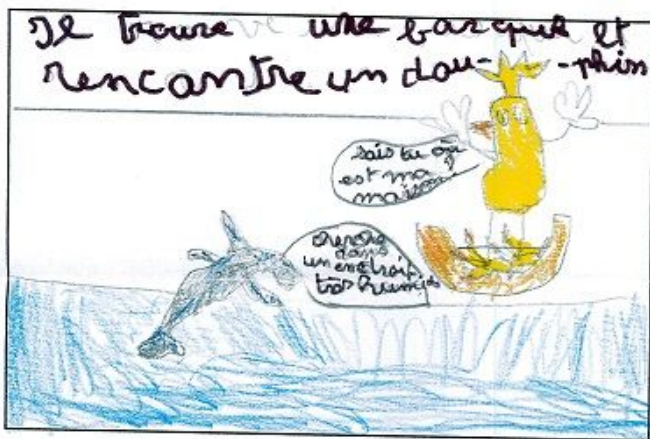 Il trouve une barque et
rencontre un dau- -phin
sais tu où
est ma
maison
cherche
dans
un endroit
très humide